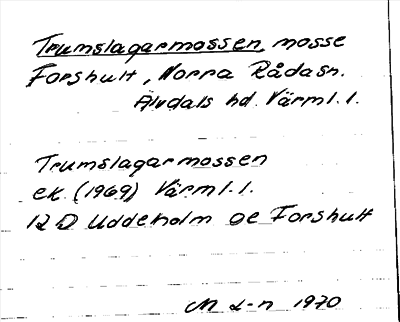 Trumslagarmossen, mosse
Forshult, Norra Råda sn.
Älvdals hd. Värml. l.
Trumslagarmossen
ek. (1969) Värml. l.
12 D Uddeholm 0e Forshult
M L-n 1970